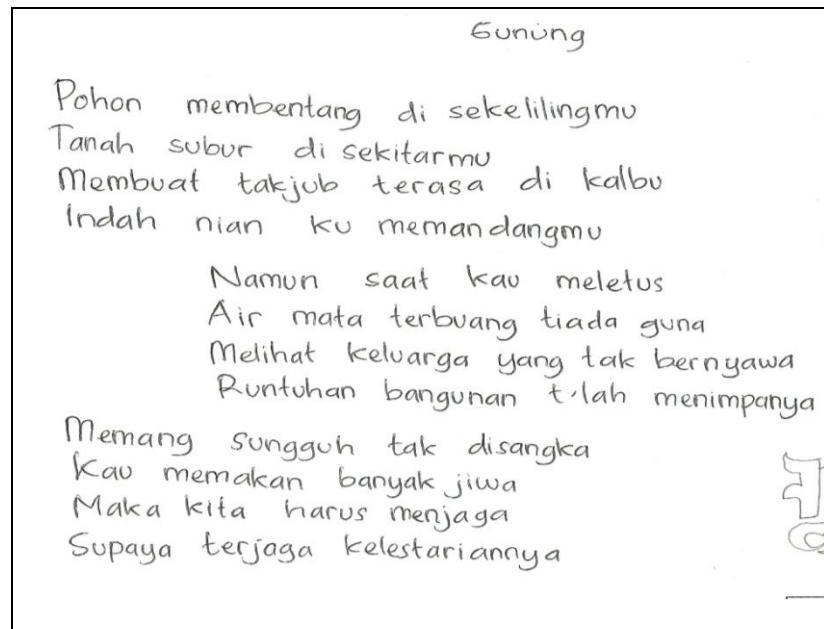 Gunung
Pohon membentang di sekelilingmu
Tanah subur di sekitarmu
Membuat takjub terasa di kalbu
Indah nian ku memandangmu
Namun saat kau meletus
Air mata terbuang tiada guna
Melihat keluarga yang tak bernyawa
Runtuhan bangunan t'lah menimpanya
Memang sungguh tak disangka
Kau memakan banyak jiwa
Maka kita harus menjaga
Supaya terjaga kelestariannya